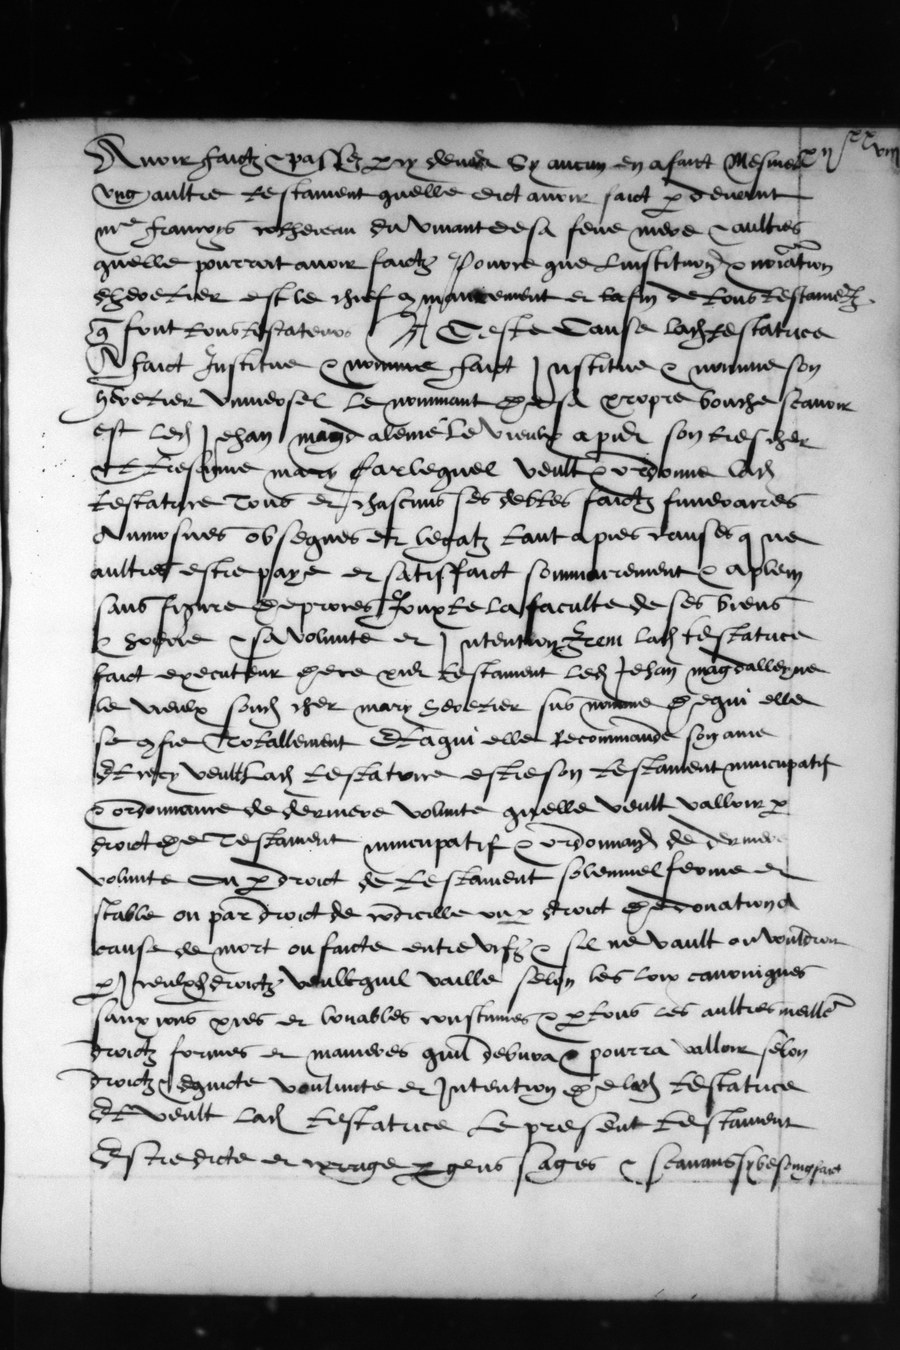 Avoir faictz & passez p cy devat Sy aucun en a faict Mesmes
ung aultre testament quelle dict avoir faict p devant
me françoys du vivant de sa feue mere & aultres
quelle pourroit avoir faictz Pource que linstitution & no͞iation
dheretier est le chief & commancement et la fin de tous testame͞tz
q font tous testateurs A Ceste Cause lad testatrice
A faict Institue & nomme faict Institue & nomme son
heretier universel le nommant de sa propre bouche scavoir
est led Jehan magdaleine le vieulx apnt son tres cher
et tresame mary par lequel veult & ordonne lad
testatrice tous et chascuns ses debtes faictz funerarres
Aumosnes obseques et legatz tant a pies causes que
aultres estre paye et satisffaict sommerement & a plein
sans figure de proces Jouxte la faculte de ses biens
& hoyrie & sa volunte et Intention Item lad testatrice
faict executeur de ce pnt testament led Jehan magdalleyne
le vieulx sond cher mary heretier sus nomme de qui elle
se confie Totallement Et a qui elle Recommande son ame
Et cecy veult lad testatrice estre son testament nuncupatif
& ordonnance de derniere volunte quelle veult valloir p
droict de testament nuncupatif & ordonnance de derniere
volunte ou p droict de testament solennel ferme et
stable ou par droict de codicille ou p droict de donation a
cause de mort ou faicte entre vifz & sil ne vault ou vouldroit
p iceulx droictz veult quil vaille selon les loix canoniques
sanxions pies et louables coustumes & p tous les aultres meille͞s
droictz formes et manieres quil debvra & pourra valloir selon
droictz equicte volunte et Intention de lad testatrice
Et veult lad testatrice Le present testament
Estre dicte et corrige p gens sages & scavans sy besoing faict